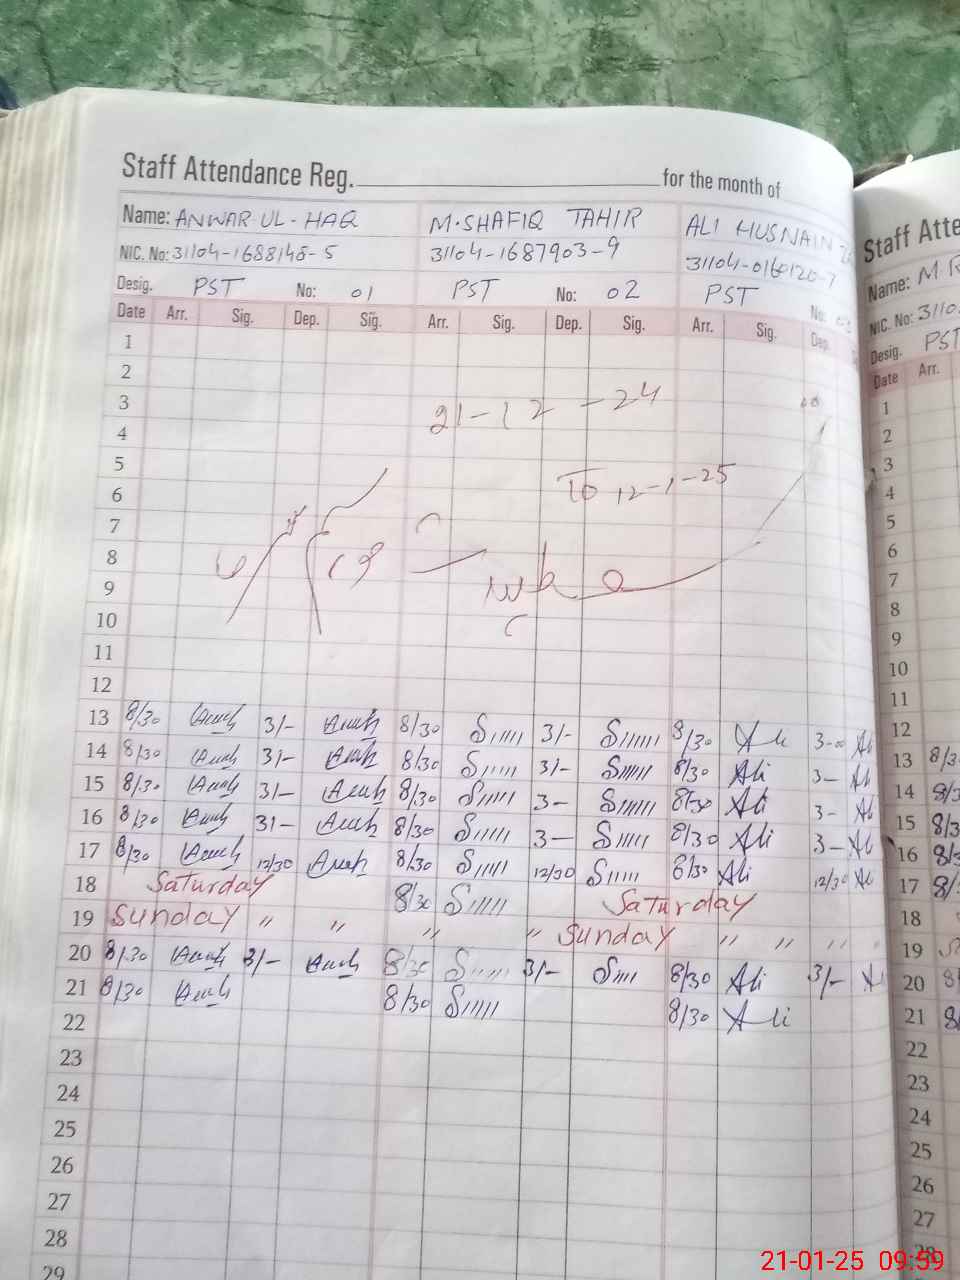 Staff Attendance Reg. for the month of
Name: ANWAR UL-HAQ M.SHAFIQ TAHIR ALI HUSNAIN
NIC. No: 31104-1688148-5 31104-1687903-9 31104-0160120-7
Desig. PST No: 01 PST No: 02 PST No:
Date Arr. Sig. Dep. Sig. Arr. Sig. Dep. Sig. Arr. Sig. Dep.
1
2
3 21-12-24
4
5
6 To 12-1-25
7
8
9
10
11
12
13 8/30 3/- 8/30 3/- 8/30 Ali 3-00 Ali
14 8/30 3/- 8/30 3/- 8/30 Ali 3- Ali
15 8/30 3/- 8/30 3- 8/30 Ali 3- Ali
16 8/30 3/- 8/30 3- 8/30 Ali 3- Ali
17 8/30 12/30 8/30 12/30 8/30 Ali 12/30 Ali
18 Saturday 8/30 Saturday
19 Sunday " " " " Sunday " " " "
20 8/30 3/- 8/30 3/- 8/30 Ali 3/-
21 8/30 8/30 8/30 Ali
22
23
24
25
26
27
28
29
Staff Atte
Name: M.
NIC. No: 3110
Desig. PST
Date Arr.
1
2
3
4
5
6
7
8
9
10
11
12
13 8/3
14 8/3
15 8/3
16 8/3
17 8/
18
19
20 8/
21 8/
22
23
24
25
26
27
28
21-01-25 09:59